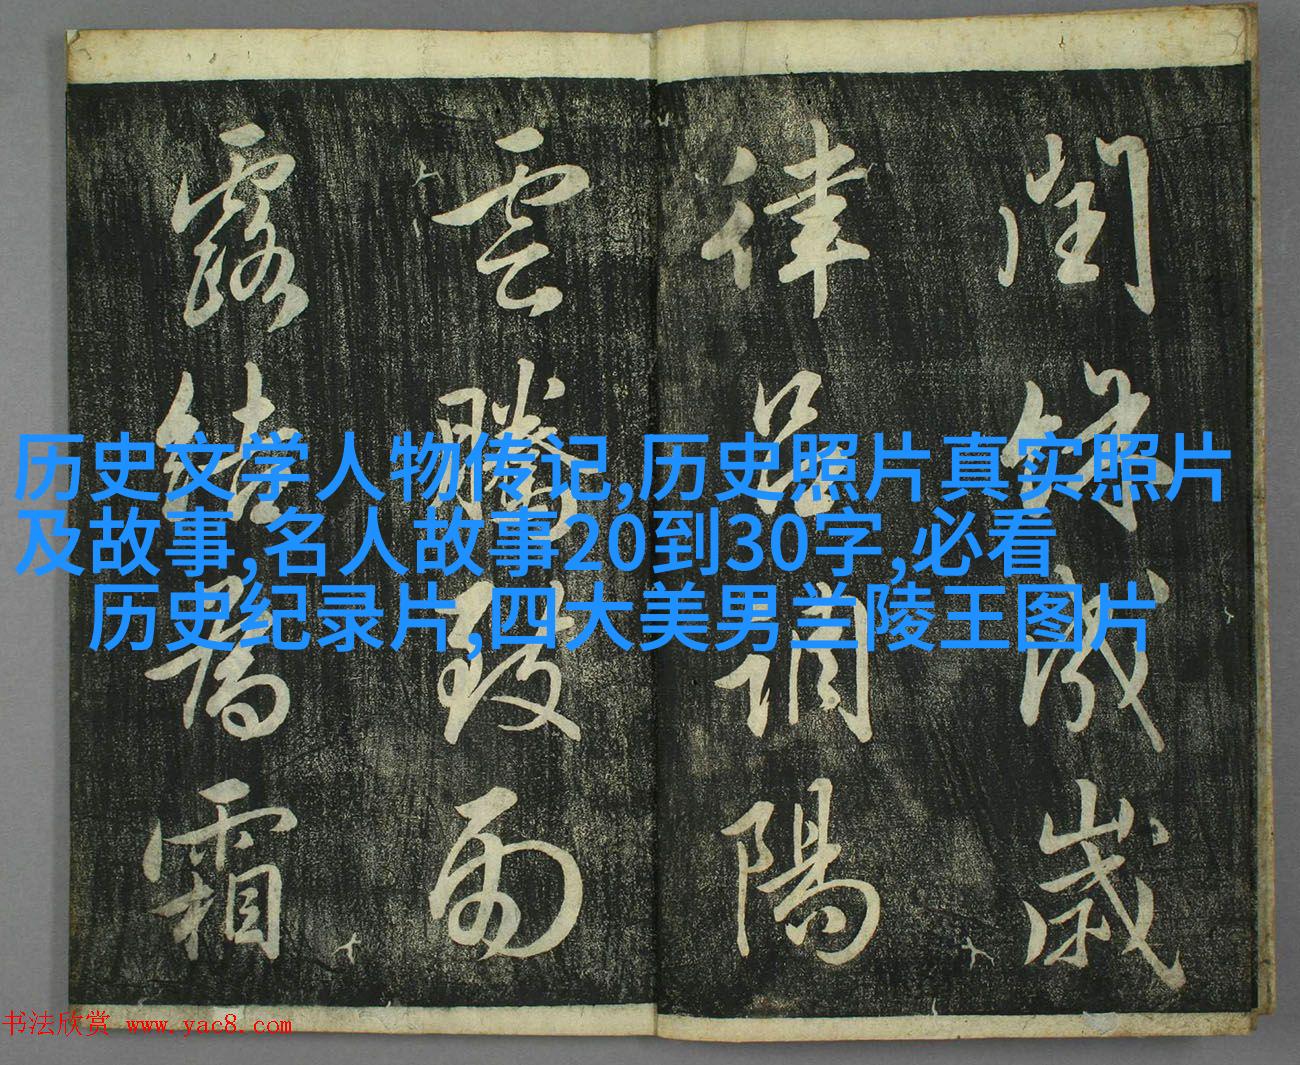 閏餘成歲
律呂調陽
雲騰致雨
露結為霜
历史文学人物传记,历史照片真实照片
及故事,名人故事20到30字,必看
历史纪录片,四大美男兰陵王图片
书法欣赏 www.yac8.com